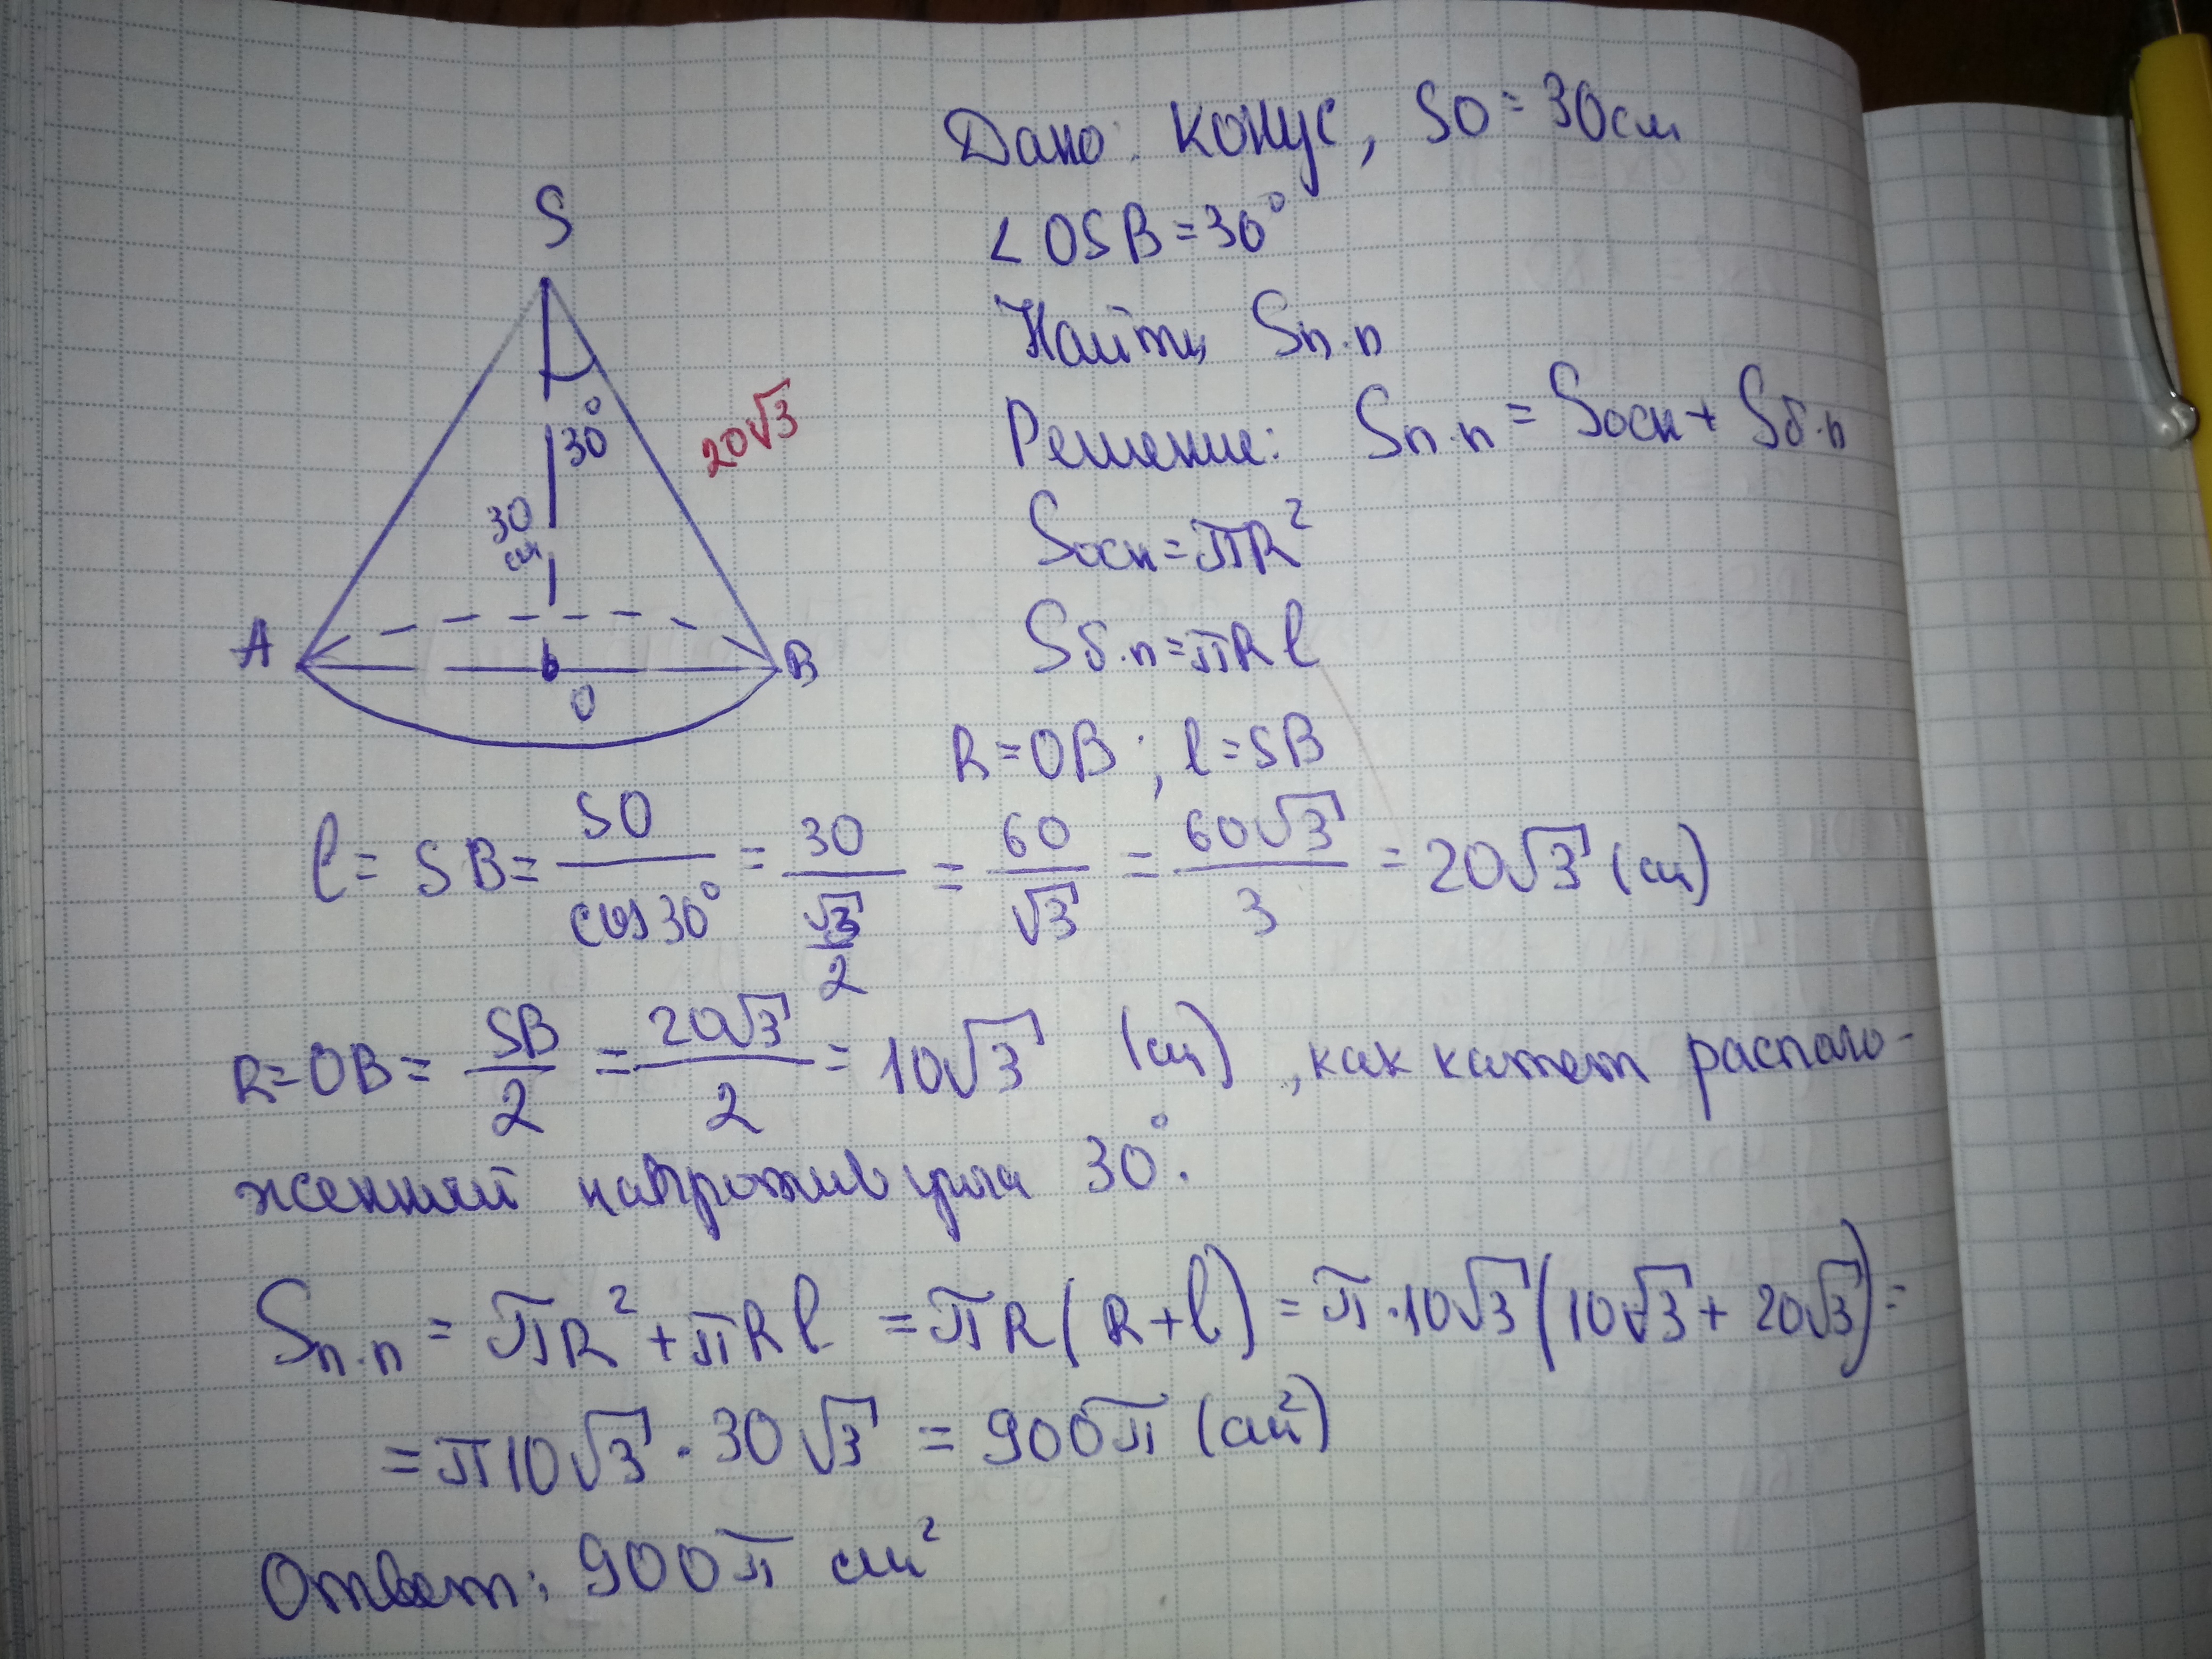 Дано: конус, SO = 30 см
∠OSB = 30°
Найти Sп.п
Решение: Sп.п = Sосн + Sб.п
Sосн = πR²
Sб.п = πRl
R = OB; l = SB
S
30°
20√3
30 см
A
B
O
l = SB = SO/cos30° = 30/(√3/2) = 60/√3 = 60√3/3 = 20√3 (см)
R = OB = SB/2 = 20√3/2 = 10√3 (см), как катет располо-
женный напротив угла 30°.
Sп.п = πR² + πRl = πR(R+l) = π·10√3(10√3 + 20√3) =
= π10√3 · 30√3 = 900π (см²)
Ответ: 900π см²